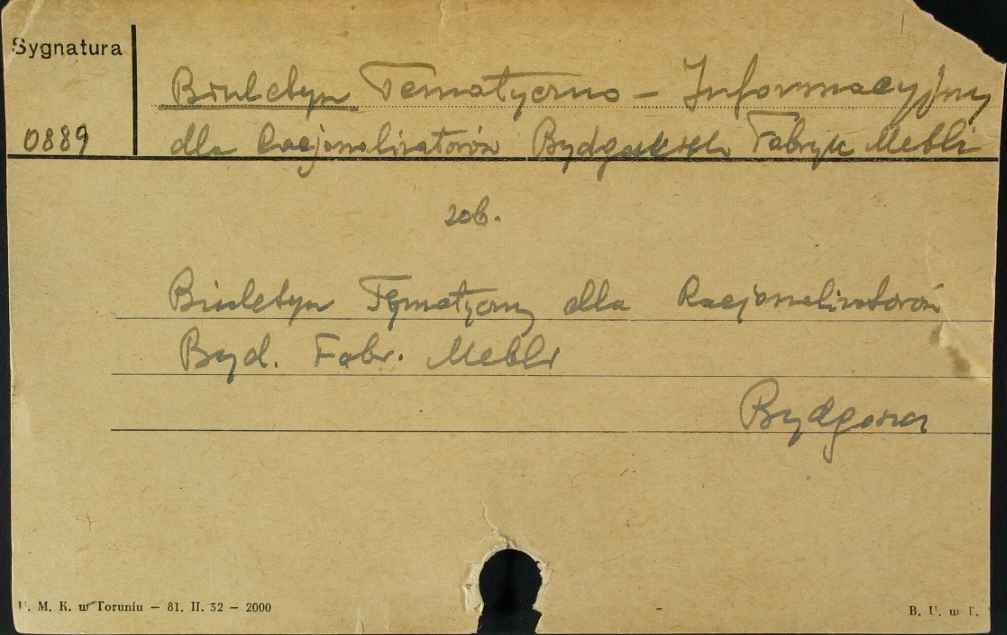 Sygnatura
Biuletyn Tematyczno - Informacyjny
0889 dla Racjonalizatorów Bydgoskich Fabryk Mebli
zob.
Biuletyn Tematyczny dla Racjonalizatorów
Byd. Fabr. Mebli
Bydgoszcz
U. M. K. w Toruniu — 81. II. 52 — 2000
B. U. w T.